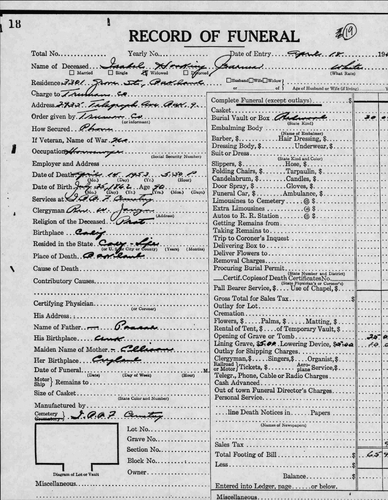 18
RECORD OF FUNERAL
Total No. Yearly No. Date of Entry April 18, 19
Name of Deceased Isabel Pearce White
Married Single Widowed Divorced (What Race)
Residence 3701 Oakland Husband Wife Widow
of
Charge to Truman Co Age of Husband or Wife (if living)
Address 2935 Telegraph Ave Oak. 9.
Order given by Truman Co
(or informant)
How Secured Phone
If Veteran, Name of War no
Occupation Housewife
(Social Security Number)
Employer and Address
Date of Death April 14, 1952
(Mo.) (Day) (Yr.) (Hour)
Date of Birth 25, 1862 Age 90
(Mo.) (Day) (Yr.)
Services at I.O.O.F. Cemetery
Clergyman Rev. W.
(Address)
Religion of the Deceased Prot
Birthplace Calif
Resided in the State Life
(City or County) (Years) (Months)
Place of Death Oakland
Cause of Death
Contributory Causes
Certifying Physician
(or Coroner)
His Address
Name of Father Pearce
His Birthplace unk
Maiden Name of Mother Ellison
Her Birthplace England
Date of Funeral
(Date) (Day of Week) (Hour)
Motor Ship Remains to
Size of Casket
(State Color and Number)
Manufactured by
Cemetery I.O.O.F. Cemetery
Crematory
Lot No.
Grave No.
Section No.
Block No.
Owner
Diagram of Lot or Vault
Miscellaneous
Complete Funeral (except outlays) $
Casket
Burial Vault or Box Redwood
(State Kind)
Embalming Body
(Name of Embalmer)
Barber, $ Hair Dressing, $
Dressing Body, $ Underwear, $
Suit or Dress
(State Kind and Color)
Slippers, $ Hose, $
Folding Chairs, $ Tarpaulin, $
Candelabrum, $ Candles, $
Door Spray, $ Gloves, $
Funeral Car, $ Ambulance, $
Limousines to Cemetery @ $
Extra Limousines @ $
Autos to R. R. Station @ $
Getting Remains from
Taking Remains to
Trip to Coroner's Inquest
Delivering Box to
Deliver Flowers to
Removal Charges
Procuring Burial Permit
(State Number and District)
Certif. Copies of Death Certificate No.
(State Physician's or Coroner's)
Pall Bearer Service, $ Use of Chapel, $
Gross Total for Sales Tax $
Outlay for Lot
Cremation
Flowers, $ Palms, $ Matting, $
Rental of Tent, $ of Temporary Vault, $
Opening of Grave or Tomb
Lining Grave, $5.00 Lowering Device, $5.00
Outlay for Shipping Charges
Clergyman, $ Singers, $ Organist, $
Railroad or Motor Tickets, $ plane Service, $
Telegr., Phone, Cable or Radio Charges
Cash Advanced
Out of town Funeral Director's Charges
Personal Service
line Death Notices in Papers
(Names of Newspapers)
Sales Tax $
Total Footing of Bill $
Less
Balance $
Entered into Ledger, page or below
Miscellaneous